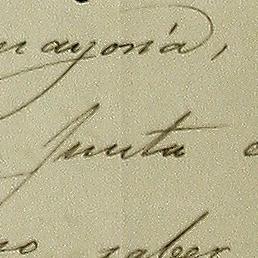 mayoría,
Junta
saber